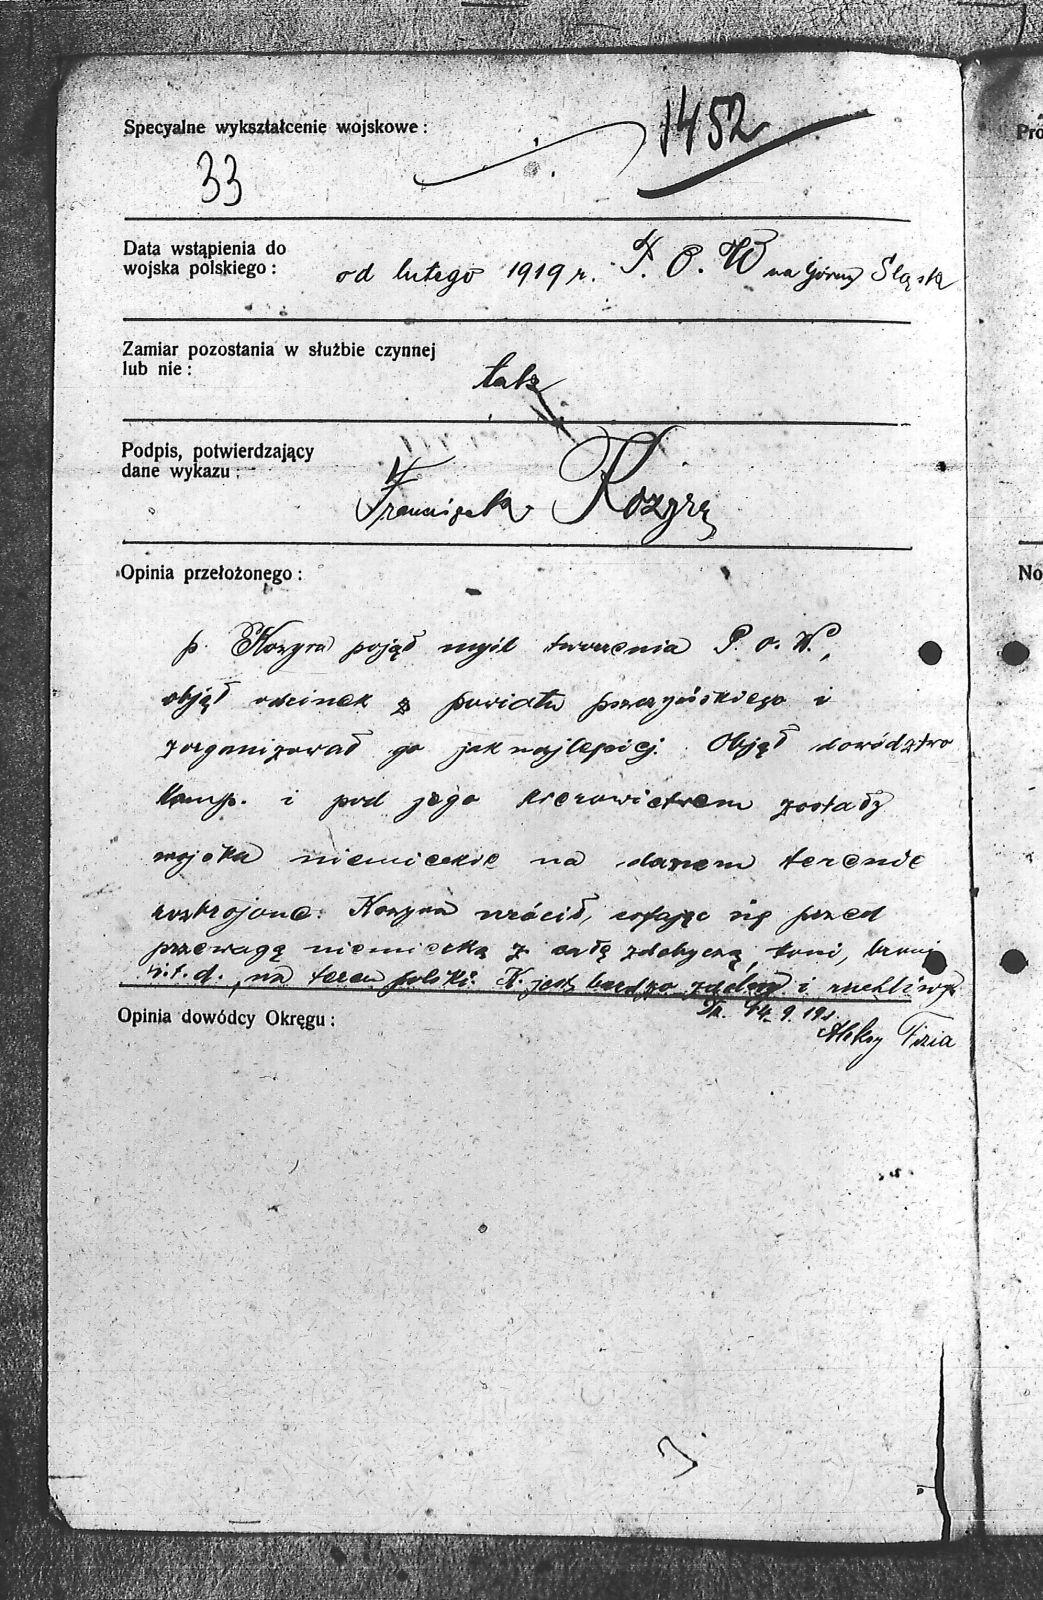 1452
Specyalne wykształcenie wojskowe:
33
Data wstąpienia do
wojska polskiego:
od lutego 1919 r. P. O. W na Górny Śląsk
Zamiar pozostania w służbie czynnej
lub nie:
tak
Podpis, potwierdzający
dane wykazu:
Franciszek
Opinia przełożonego:
p. Kozyra pojął myśl tworzenia P. O. W.,
objął odcinek z powiatu pszczyńskiego i
zorganizował go jak najlepiej. Objął dowództwo
komp. i pod jego kierowictwem zostały
wojska niemieckie na danem terenie
rozbrojone. Kozyra wrócił, cofając się przed
przewagą niemiecką z całą zdobyczą, koni, broni
i.t.d., na teren polski. K. jest bardzo zdolny i ruchliwy
14. 9. 19
Opinia dowódcy Okręgu:
Aleksy Fizia
Pró
No